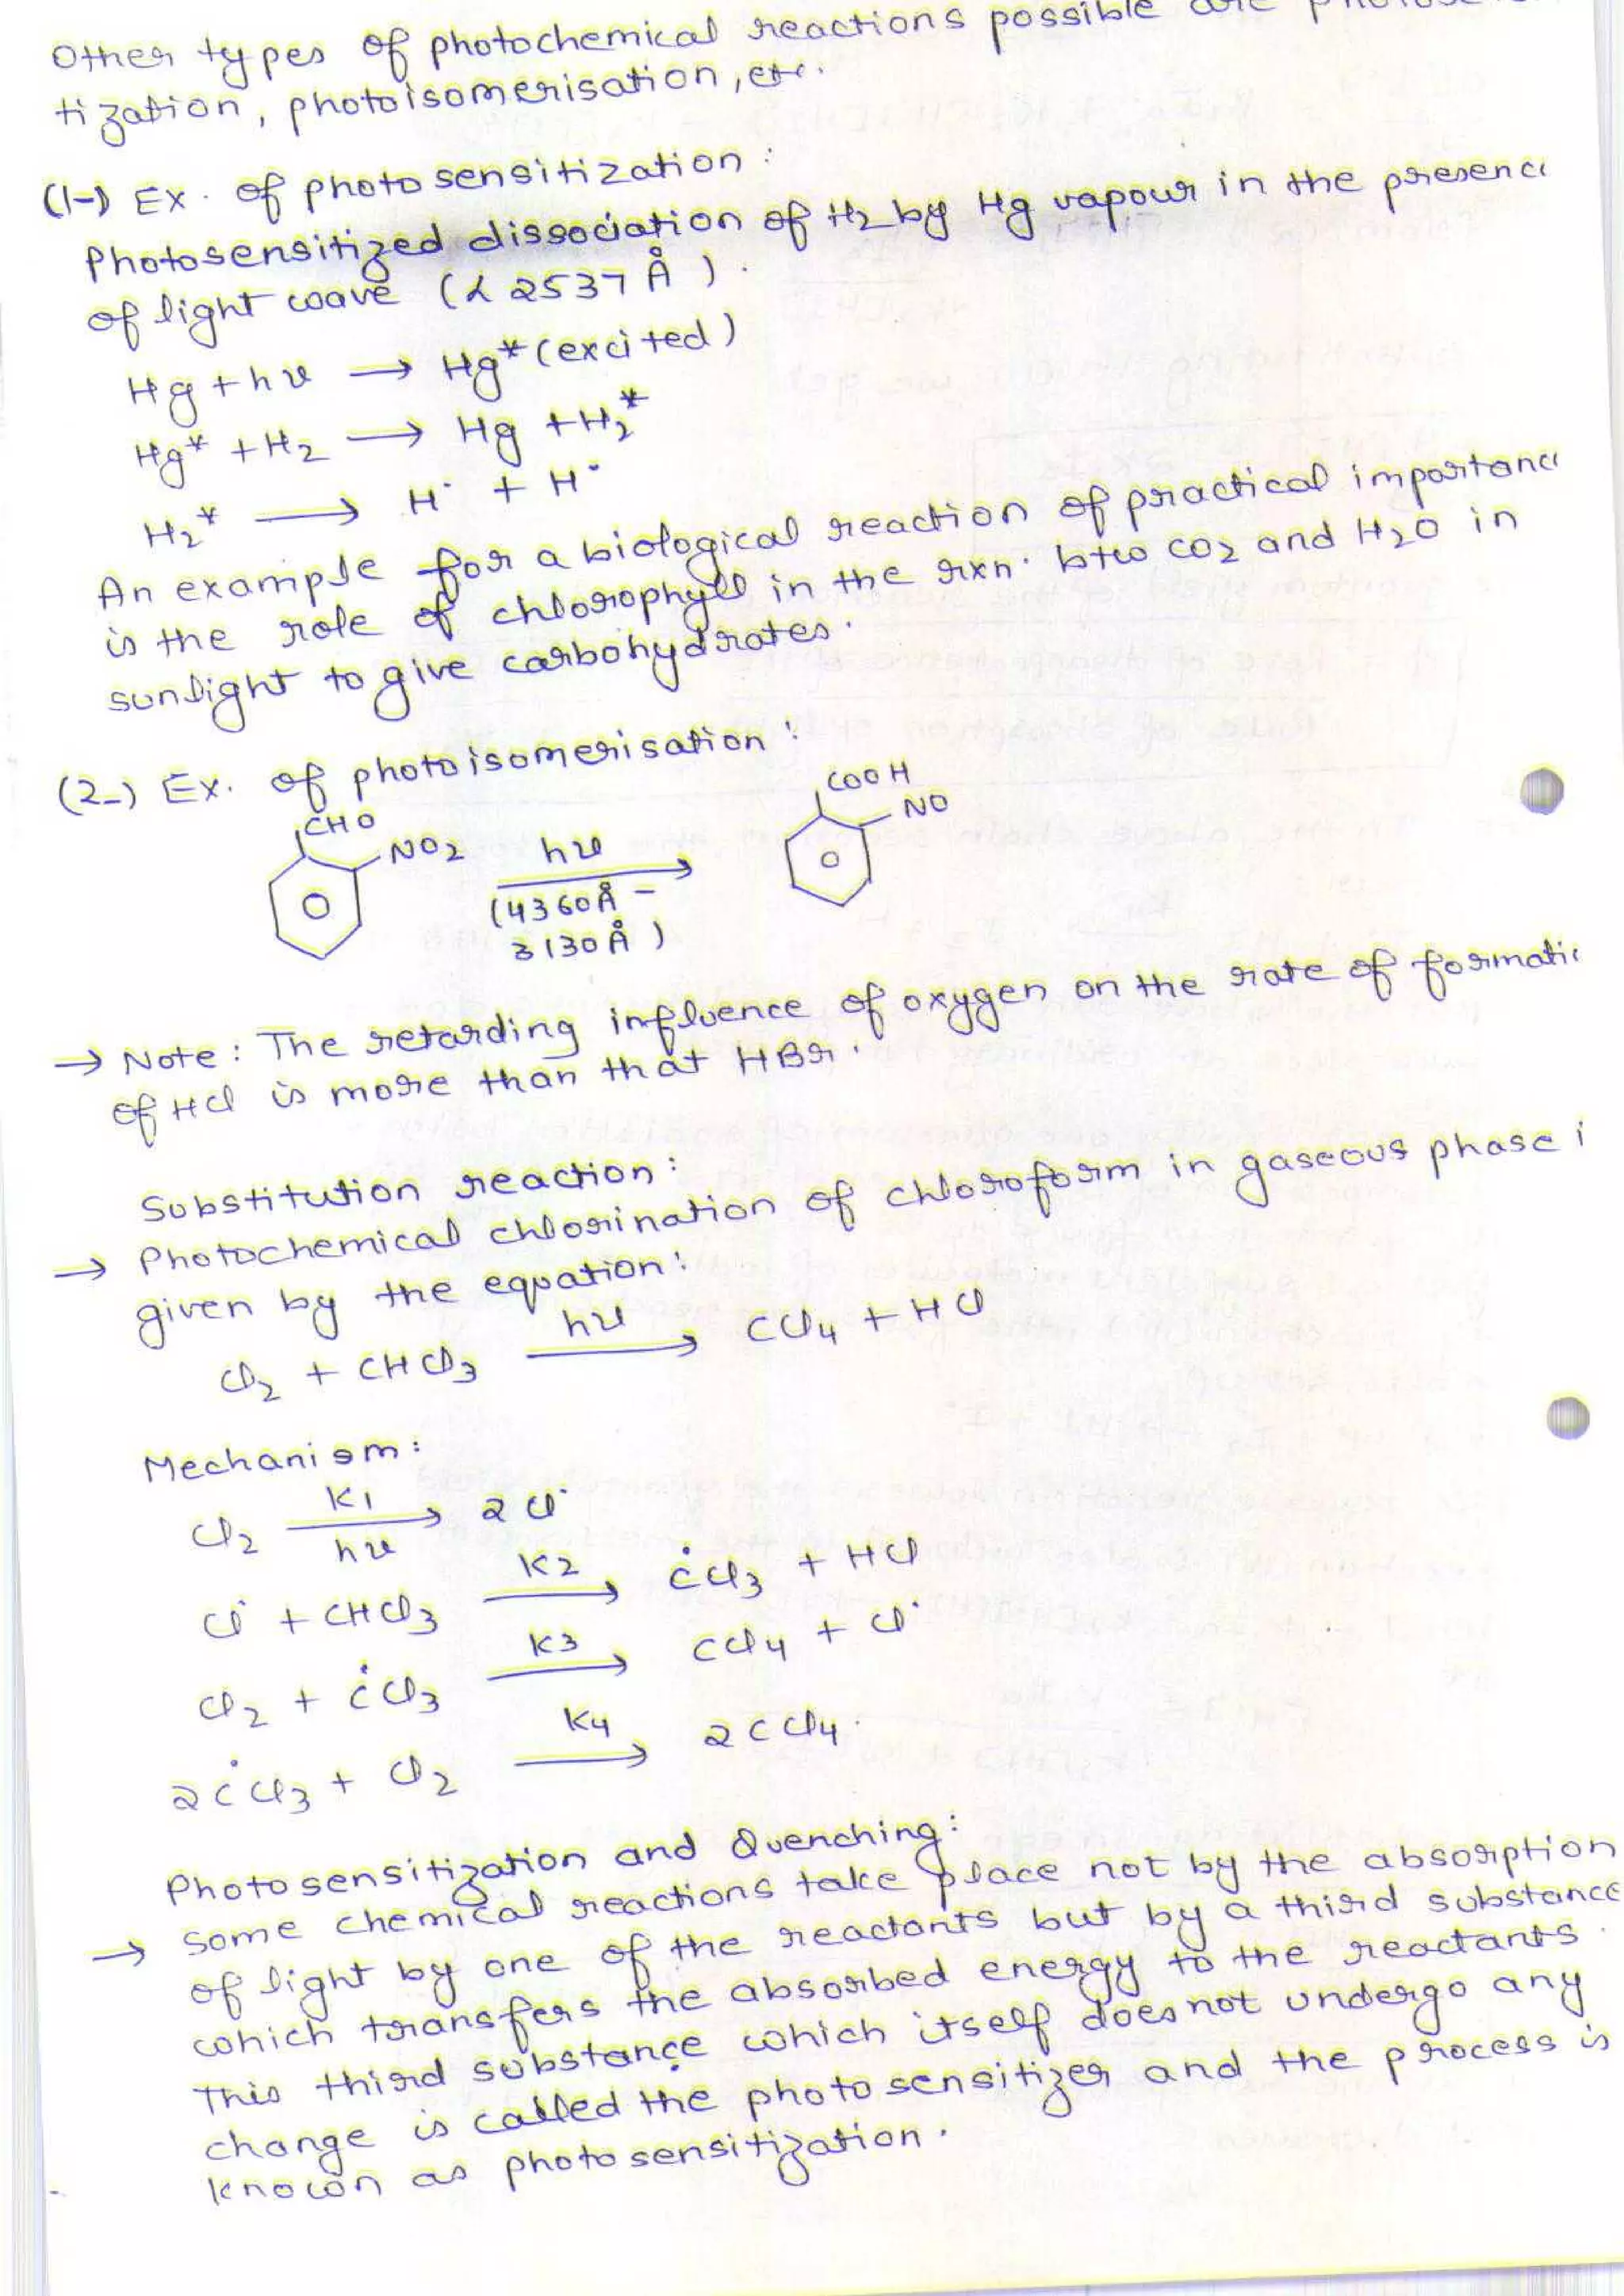 Other types of photochemical reactions possible are
tization, photoisomerisation, etc.
(1-) Ex. of photosensitization:
Photosensitized dissociation of H2 by Hg vapour in the presenc
of light wave (λ 2537 Å).
Hg + hν → Hg* (excited)
Hg* + H2 → Hg + H2*
H2* → H· + H·
An example for a biological reaction of practical importanc
is the role of chlorophyll in the rxn. btw CO2 and H2O in
sunlight to give carbohydrates.
(2-) Ex. of photoisomerisation:
CHO
NO2
hν
(4360Å -
3130Å)
COOH
NO
→ Note: The retarding influence of oxygen on the rate of formati
of HCl is more than that HBr.
Substitution reaction:
→ Photochemical chlorination of chloroform in gaseous phase i
given by the equation:
Cl2 + CHCl3 hν → CCl4 + HCl
Mechanism:
Cl2 K1 → hν 2Cl·
Cl· + CHCl3 K2 → ĊCl3 + HCl
Cl2 + ĊCl3 K3 → CCl4 + Cl·
2ĊCl3 + Cl2 K4 → 2CCl4.
Photosensitization and Quenching:
→ Some chemical reactions take place not by the absorption
of light by one of the reactants but by a third substance
which transfers the absorbed energy to the reactants.
This third substance which itself does not undergo any
change is called the photosensitizer and the process is
known as photosensitization.